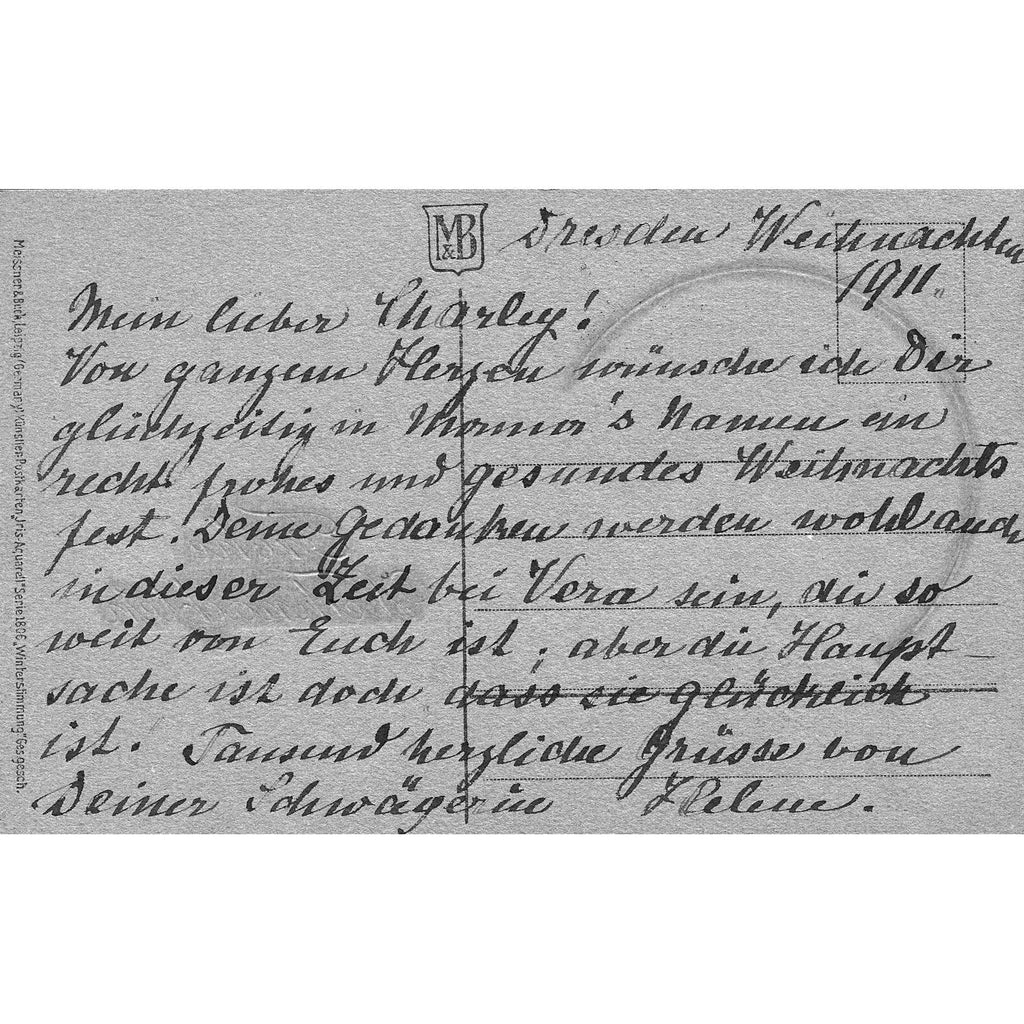 M&B
Dresden Weihnachten
1911.
Mein lieber Charley!
Von ganzem Herzen wünsche ich Dir
gleichzeitig in Mama's Namen ein
recht frohes und gesundes Weihnachts
fest. Deine Gedanken werden wohl auch
in dieser Zeit bei Vera sein, die so
weit von Euch ist; aber die Haupt-
sache ist doch dass sie glücklich
ist. Tausend herzliche Grüsse von
Deiner Schwägerin Helene.
Meissner & Buch Leipzig (Germany) Künstler-Postkarten „Iris-Aquarell" Serie 1806 „Winterstimmung" Ges. gesch.